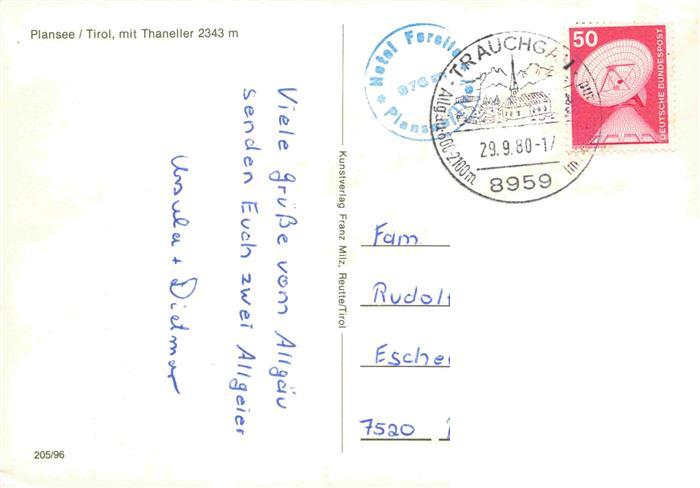 Plansee / Tirol, mit Thaneller 2343 m
Hotel Forelle
976 m
Plansee
TRAUCHGAU
Allgäu 800-2100m
im
29.9.80-17
8959
50
DEUTSCHE BUNDESPOST
Viele grüße vom Allgäu
senden Euch zwei Allgeier
Ursula + Dietmar
Kunstverlag Franz Milz, Reutte/Tirol
Fam
Rudol
Esche
7520
205/96